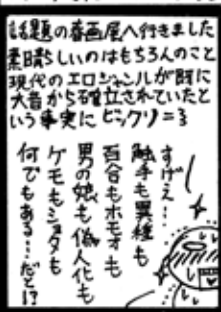 話題の春画展へ行きました
素晴らしいのはもちろんのこと
現代のエロジャンルが既に
大昔から確立されていたと
いう事実にビックリ=3
すげえ…
触手も異種も
百合もホモオも
男の娘も偽人化も
ケモもショタも
何でもある…だと!?